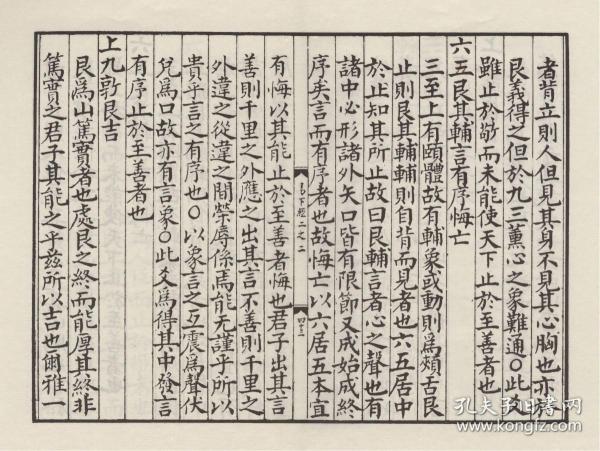 者背立則人但見其身不見其心胸也亦於
艮義得之但於九三薰心之象難通○此爻
雖止於敬而未能使天下止於至善者也
六五艮其輔言有序悔亡
三至上有頤體故有輔象或動則爲頰舌艮
止則艮其輔輔則自背而見者也六五居中
於止知其所止故曰艮輔言者心之聲也有
諸中必形諸外矢口皆有限節又成始成終
序矣言而有序者也故悔亡以六居五本宜
易下經二之二
四十二
有悔以其能止於至善者悔也君子出其言
善則千里之外應之出其言不善則千里之
外違之從違之間榮辱係焉能无謹乎所以
貴乎言之有序也○以象言之互震爲聲伏
兌爲口故亦有言象○此爻爲得其中發言
有序止於至善者也
上九敦艮吉
艮爲山篤實者也處艮之終而能厚其終非
篤實之君子其能之乎茲所以吉也爾雅一
孔夫子旧书网
www.kongfz.com